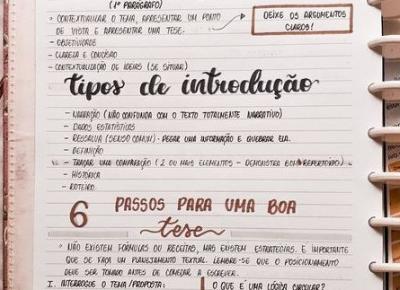 (1º PARÁGRAFO)
◦ CONTEXTUALIZAR O TEMA, APRESENTAR UM PONTO
DE VISTA E APRESENTAR UMA TESE.
- OBJETIVIDADE
- CLAREZA E CONCISÃO
- CONTEXTUALIZAÇÃO DE IDEIAS (SE SITUAR)
DEIXE OS ARGUMENTOS
CLAROS!
tipos de introdução
- NARRAÇÃO (NÃO CONFUNDA COM O TEXTO TOTALMENTE NARRATIVO)
- DADOS ESTATÍSTICOS
- RESSALVA (SENSO COMUM) - PEGAR UMA INFORMAÇÃO E QUEBRAR ELA.
- DEFINIÇÃO
- TRAÇAR UMA COMPARAÇÃO (2 OU MAIS ELEMENTOS - DEMONSTRA BOM REPERTÓRIO)
- HISTÓRICA
- ROTEIRO
6 PASSOS PARA UMA BOA
tese
◦ NÃO EXISTEM FÓRMULAS OU RECEITAS, MAS EXISTEM ESTRATÉGIAS. É IMPORTANTE
QUE SE FAÇA UM PLANEJAMENTO TEXTUAL. LEMBRE-SE QUE O POSICIONAMENTO
DEVE SER TOMADO ANTES DE COMEÇAR A ESCREVER.
1. INTERROGUE O TEMA/PROPOSTA:
O QUE É UMA LÓGICA CIRCULAR?